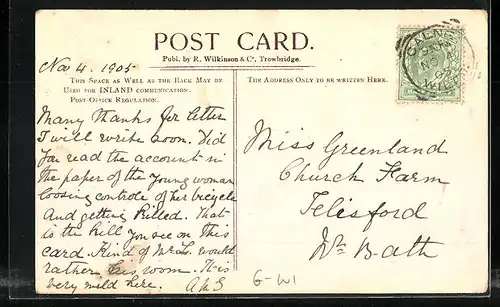 POST CARD.
Publ. by R. Wilkinson & Co, Trowbridge.
Nov 4. 1905
This Space as Well as the Back May be
Used for INLAND communication.
Post-Office Regulation.
The Address Only to be written Here.
Many thanks for letter
I will write soon. Did
Far read the account in
the paper of the young woman
loosing controle of her bicycle
And getting killed. That
is the hill you see on this
card. Kind of would
rather this room. It is
very mild here. AWS
Miss Greenland
Church Farm
Telisford
Nr Bath
CALNE
NO
05
G-W1